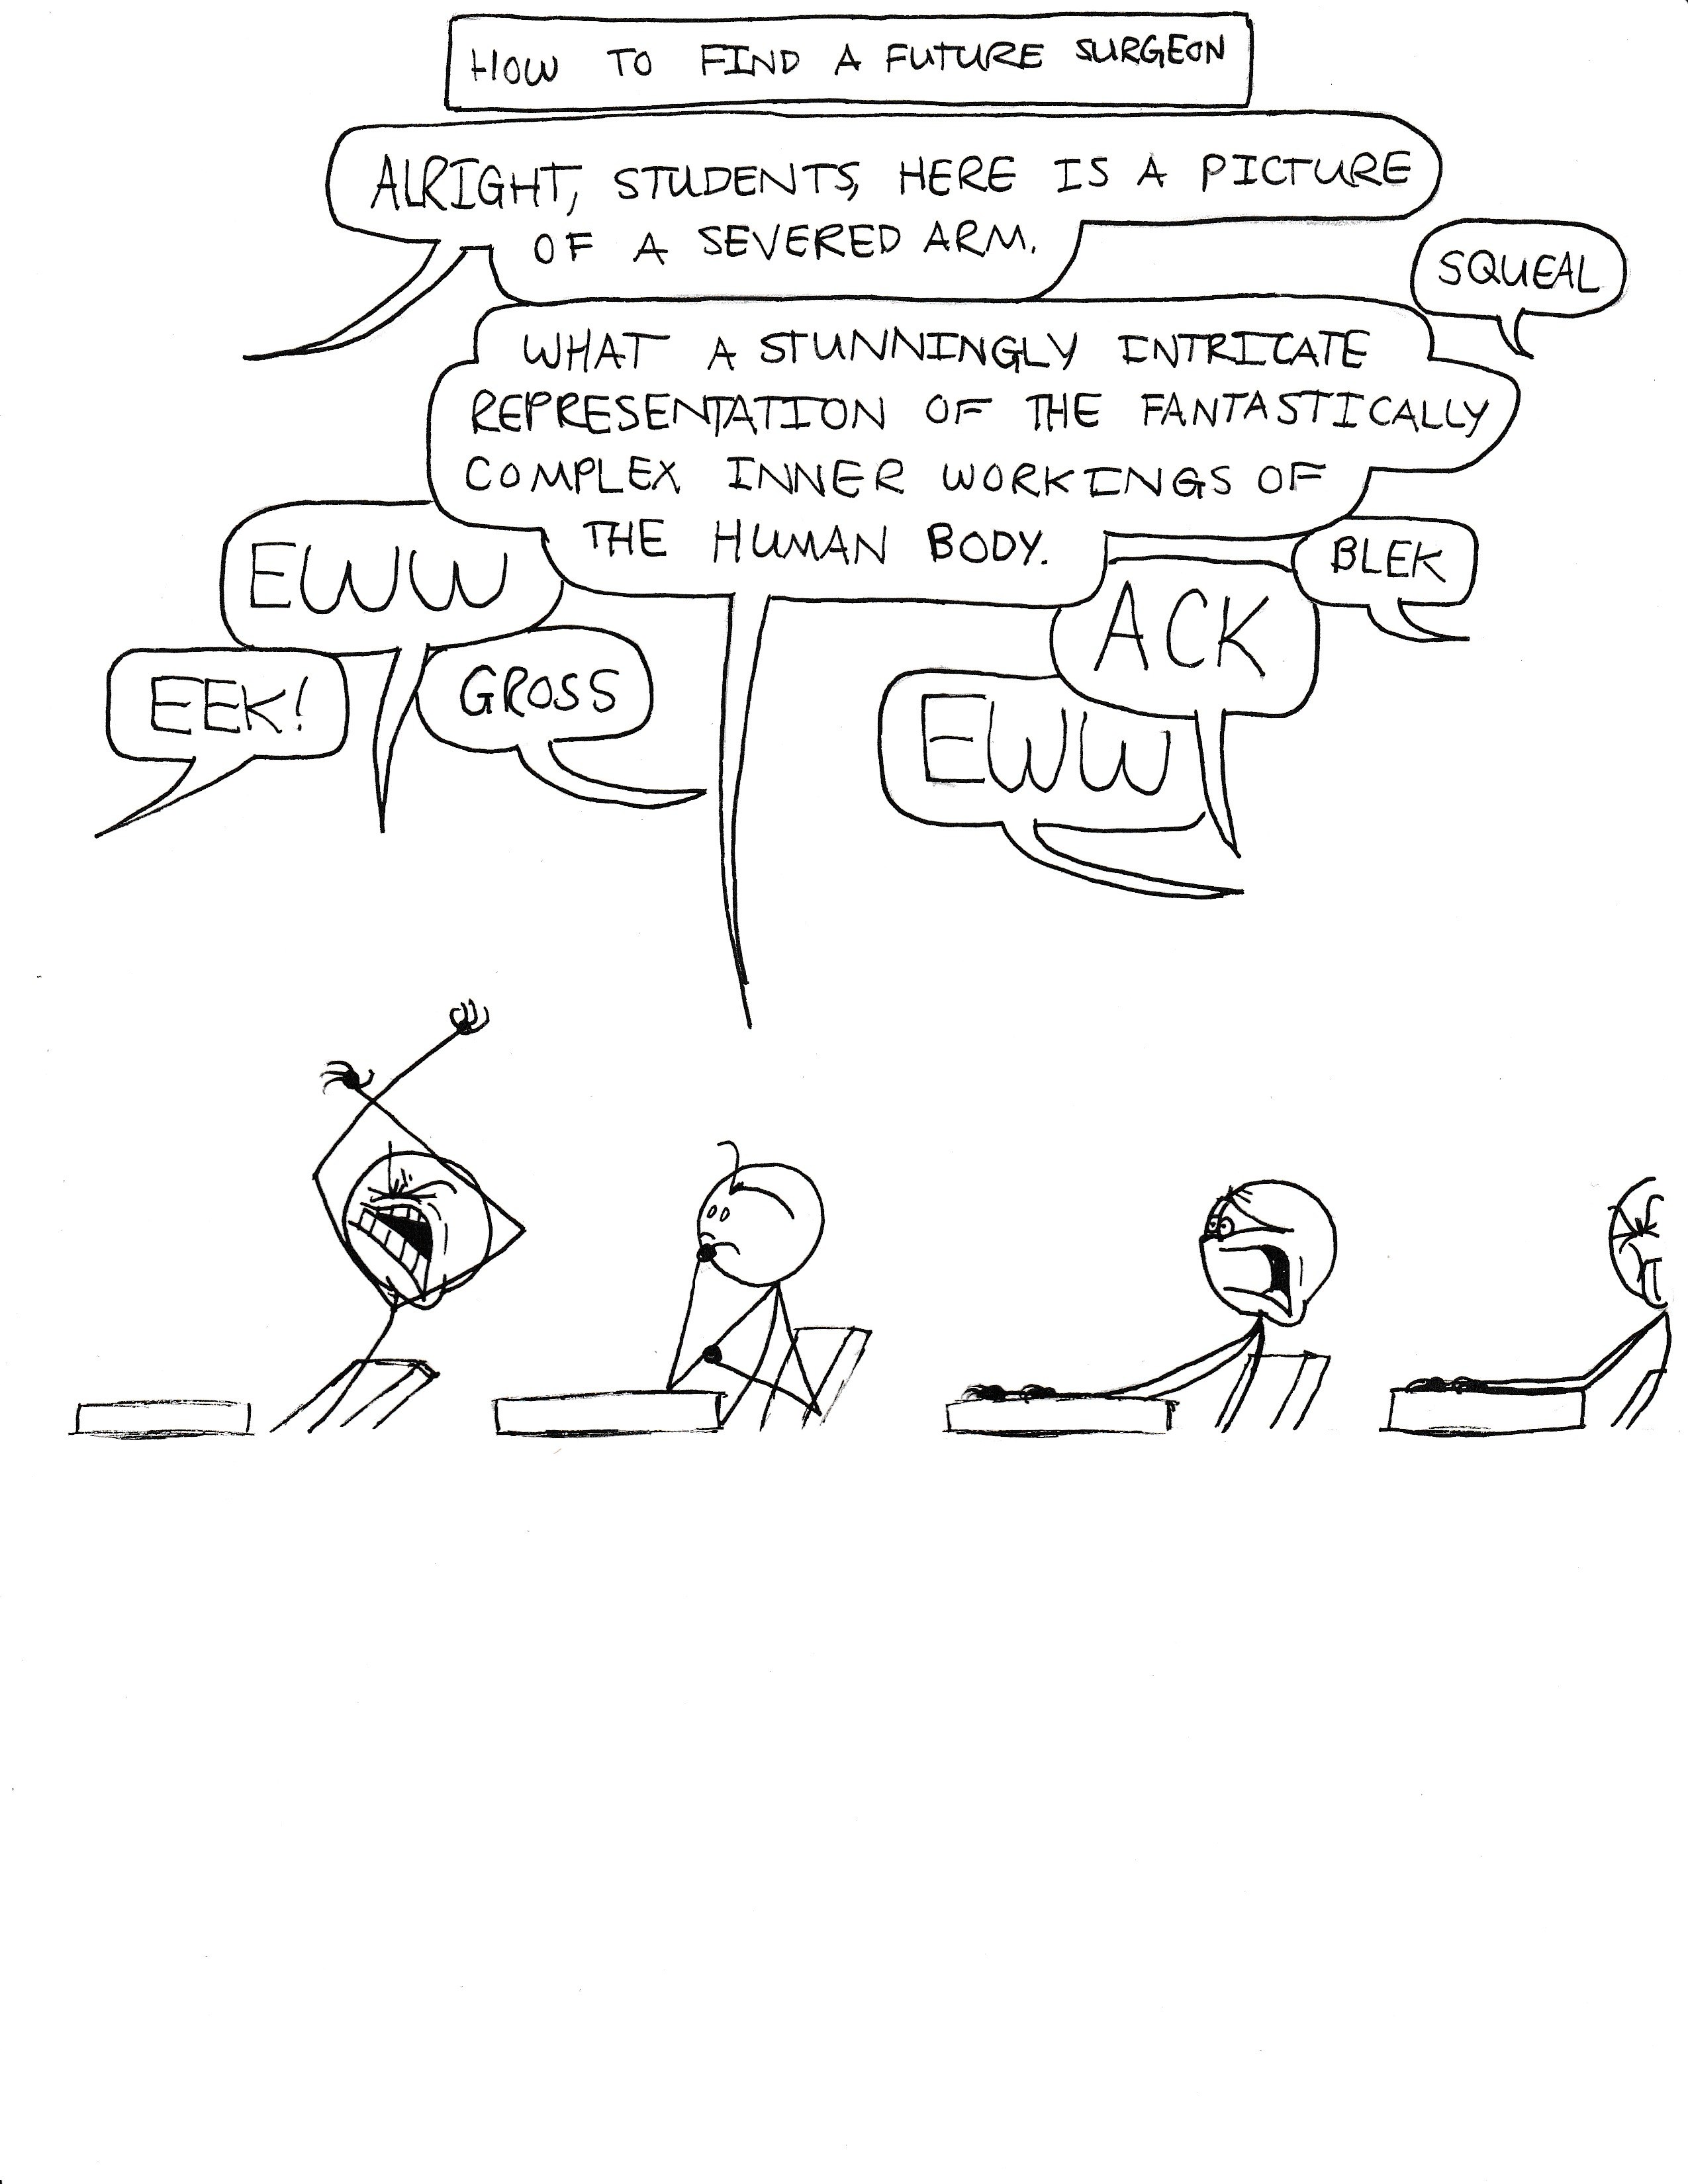 HOW TO FIND A FUTURE SURGEON
ALRIGHT, STUDENTS, HERE IS A PICTURE
OF A SEVERED ARM.
SQUEAL
WHAT A STUNNINGLY INTRICATE
REPRESENTATION OF THE FANTASTICALLY
COMPLEX INNER WORKINGS OF
THE HUMAN BODY.
EWW
BLEK
ACK
EEK!
GROSS
EWW